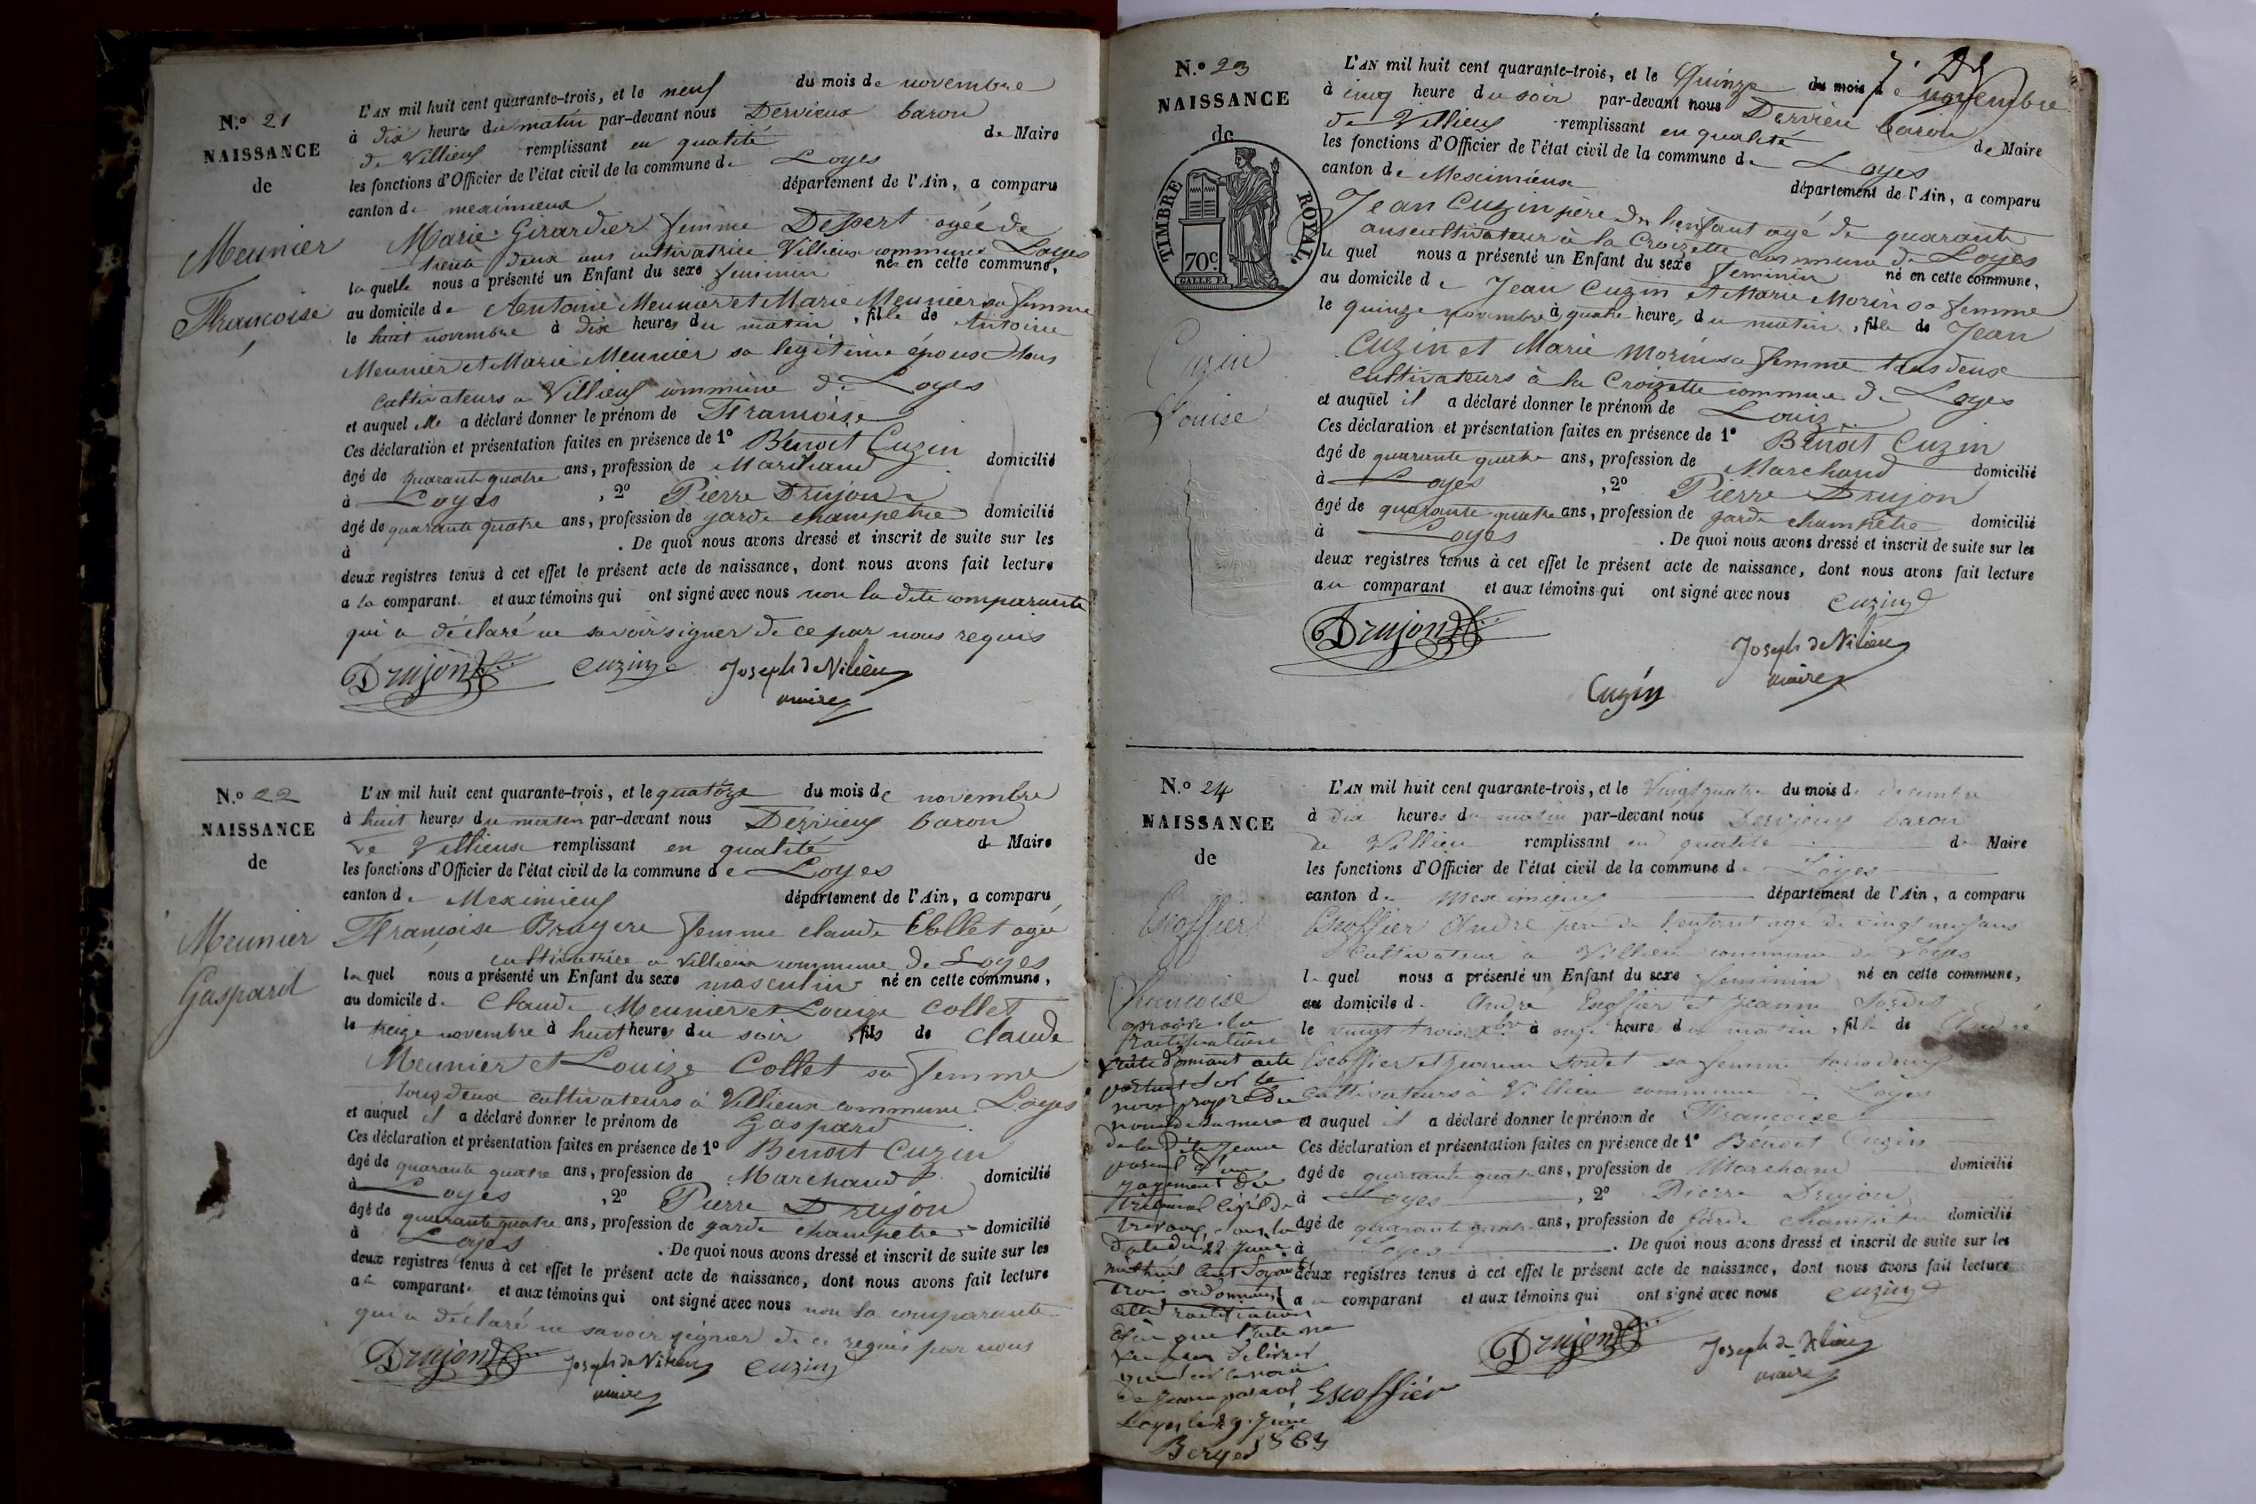 N.º 21
NAISSANCE
de
Meunier
Françoise
L'AN mil huit cent quarante-trois, et le neuf du mois de novembre
à dix heures du matin par-devant nous Dervieux baron
de Villieux remplissant en qualité de Maire
les fonctions d'Officier de l'état civil de la commune de Loyes
canton de meximieux département de l'Ain, a comparu
Marie Girardier femme Despert agée de
trente deux ans cultivatrice Villieux commune Loyes
laquelle nous a présenté un Enfant du sexe feminin né en cette commune,
au domicile de Antoine Meunier et Marie Meunier sa femme
le huit novembre à dix heures du matin, fille de Antoine
Meunier et Marie Meunier sa legitime épouse tous
cultivateurs a Villieux commune de Loyes
et auquel elle a déclaré donner le prénom de Francoise
Ces déclaration et présentation faites en présence de 1º Benoit Cuzin
âgé de quarante quatre ans, profession de Marchand domicilié
à Loyes, 2º Pierre Drujon
âgé de quarante quatre ans, profession de garde champetre domicilié
à . De quoi nous avons dressé et inscrit de suite sur les
deux registres tenus à cet effet le présent acte de naissance, dont nous avons fait lecture
a la comparant. et aux témoins qui ont signé avec nous non la dite comparante
qui a déclaré ne savoir signer de ce par nous requis
Drujon Cuzin Joseph de Vilieu
maire
N.º 22
NAISSANCE
de
Meunier
Gaspard
L'AN mil huit cent quarante-trois, et le quatoze du mois de novembre
à huit heures du matin par-devant nous Dervieux baron
de Villieux remplissant en qualité de Maire
les fonctions d'Officier de l'état civil de la commune de Loyes
canton de Meximieux département de l'Ain, a comparu
Françoise Bruyere femme claude Collet agée
cultivatrice a Villieux commune de Loyes
laquel nous a présenté un Enfant du sexe masculin né en cette commune,
au domicile de Claude Meunier et Louize Collet
le treize novembre à huit heures du soir, fils de claude
Meunier et Louize Collet sa femme
tous deux cultivateurs à Villieux commune Loyes
et auquel il a déclaré donner le prénom de Gaspard
Ces déclaration et présentation faites en présence de 1º Benoit Cuzin
âgé de quarante quatre ans, profession de Marchand domicilié
à Loyes, 2º Pierre Drujon
âgé de quarante quatre ans, profession de garde champetre domicilié
à Loyes . De quoi nous avons dressé et inscrit de suite sur les
deux registres tenus à cet effet le présent acte de naissance, dont nous avons fait lecture
a la comparant. et aux témoins qui ont signé avec nous non la comparante
qui a déclaré ne savoir signer de ce requis par nous
Drujon Joseph de Vilieu Cuzin
maire
N.º 23
NAISSANCE
de
TIMBRE ROYAL
70 c.
Cuzin
Louise
L'AN mil huit cent quarante-trois, et le Quinze du mois de novembre
à cinq heure du soir par-devant nous Dervieu baron
de Villieux remplissant en qualité de Maire
les fonctions d'Officier de l'état civil de la commune de Loyes
canton de Meximieux département de l'Ain, a comparu
Jean Cuzin père de l'enfant agé de quarante
ans cultivateur à la Croizette commune de Loyes
le quel nous a présenté un Enfant du sexe feminin né en cette commune,
au domicile de Jean Cuzin et Marie Morin sa femme
le quinze novembre à quatre heures du matin, fille de Jean
Cuzin et Marie Morin sa femme tous deux
cultivateurs à la Croizette commune de Loyes
et auquel il a déclaré donner le prénom de Louiz
Ces déclaration et présentation faites en présence de 1º Benoit Cuzin
âgé de quarante quatre ans, profession de Marchand domicilié
à Loyes, 2º Pierre Drujon
âgé de quarante quatre ans, profession de garde champêtre domicilié
à Loyes . De quoi nous avons dressé et inscrit de suite sur les
deux registres tenus à cet effet le présent acte de naissance, dont nous avons fait lecture
au comparant et aux témoins qui ont signé avec nous Cuzin
Drujon Joseph de Vilieu
maire
Cuzin
N.º 24
NAISSANCE
de
Escoffier
Francoise
L'AN mil huit cent quarante-trois, et le Vingt quatre du mois de decembre
à dix heures du matin par-devant nous Dervieux baron
de Villieu remplissant en qualité de Maire
les fonctions d'Officier de l'état civil de la commune de Loyes
canton de Meximieux département de l'Ain, a comparu
Escoffier André père de l'enfant agé de vingt neuf ans
Cultivateur à Villieu commune de Loyes
le quel nous a présenté un Enfant du sexe feminin né en cette commune,
au domicile de André Escoffier et Jeanne
le vingt trois à onze heures du matin, fille de André
Escoffier et Jeanne sa femme tous deux
cultivateurs à Villieu commune de Loyes
et auquel il a déclaré donner le prénom de Francoise
Ces déclaration et présentation faites en présence de 1º Benoit Cuzin
âgé de quarante quatre ans, profession de Marchand domicilié
à Loyes, 2º Pierre Drujon
âgé de quarante quatre ans, profession de garde champetre domicilié
à Loyes . De quoi nous avons dressé et inscrit de suite sur les
deux registres tenus à cet effet le présent acte de naissance, dont nous avons fait lecture
au comparant et aux témoins qui ont signé avec nous Cuzin
Drujon Joseph de Vilieu
maire
Escoffier
rectification
portant sur le
nom propre du
nom de sa mere
jugement du
tribunal civil de
trevoux sous la
date du 22 Juin
mil huit cent soixante
trois ordonnant
cette rectification
Loyes le 29 Juin
1863